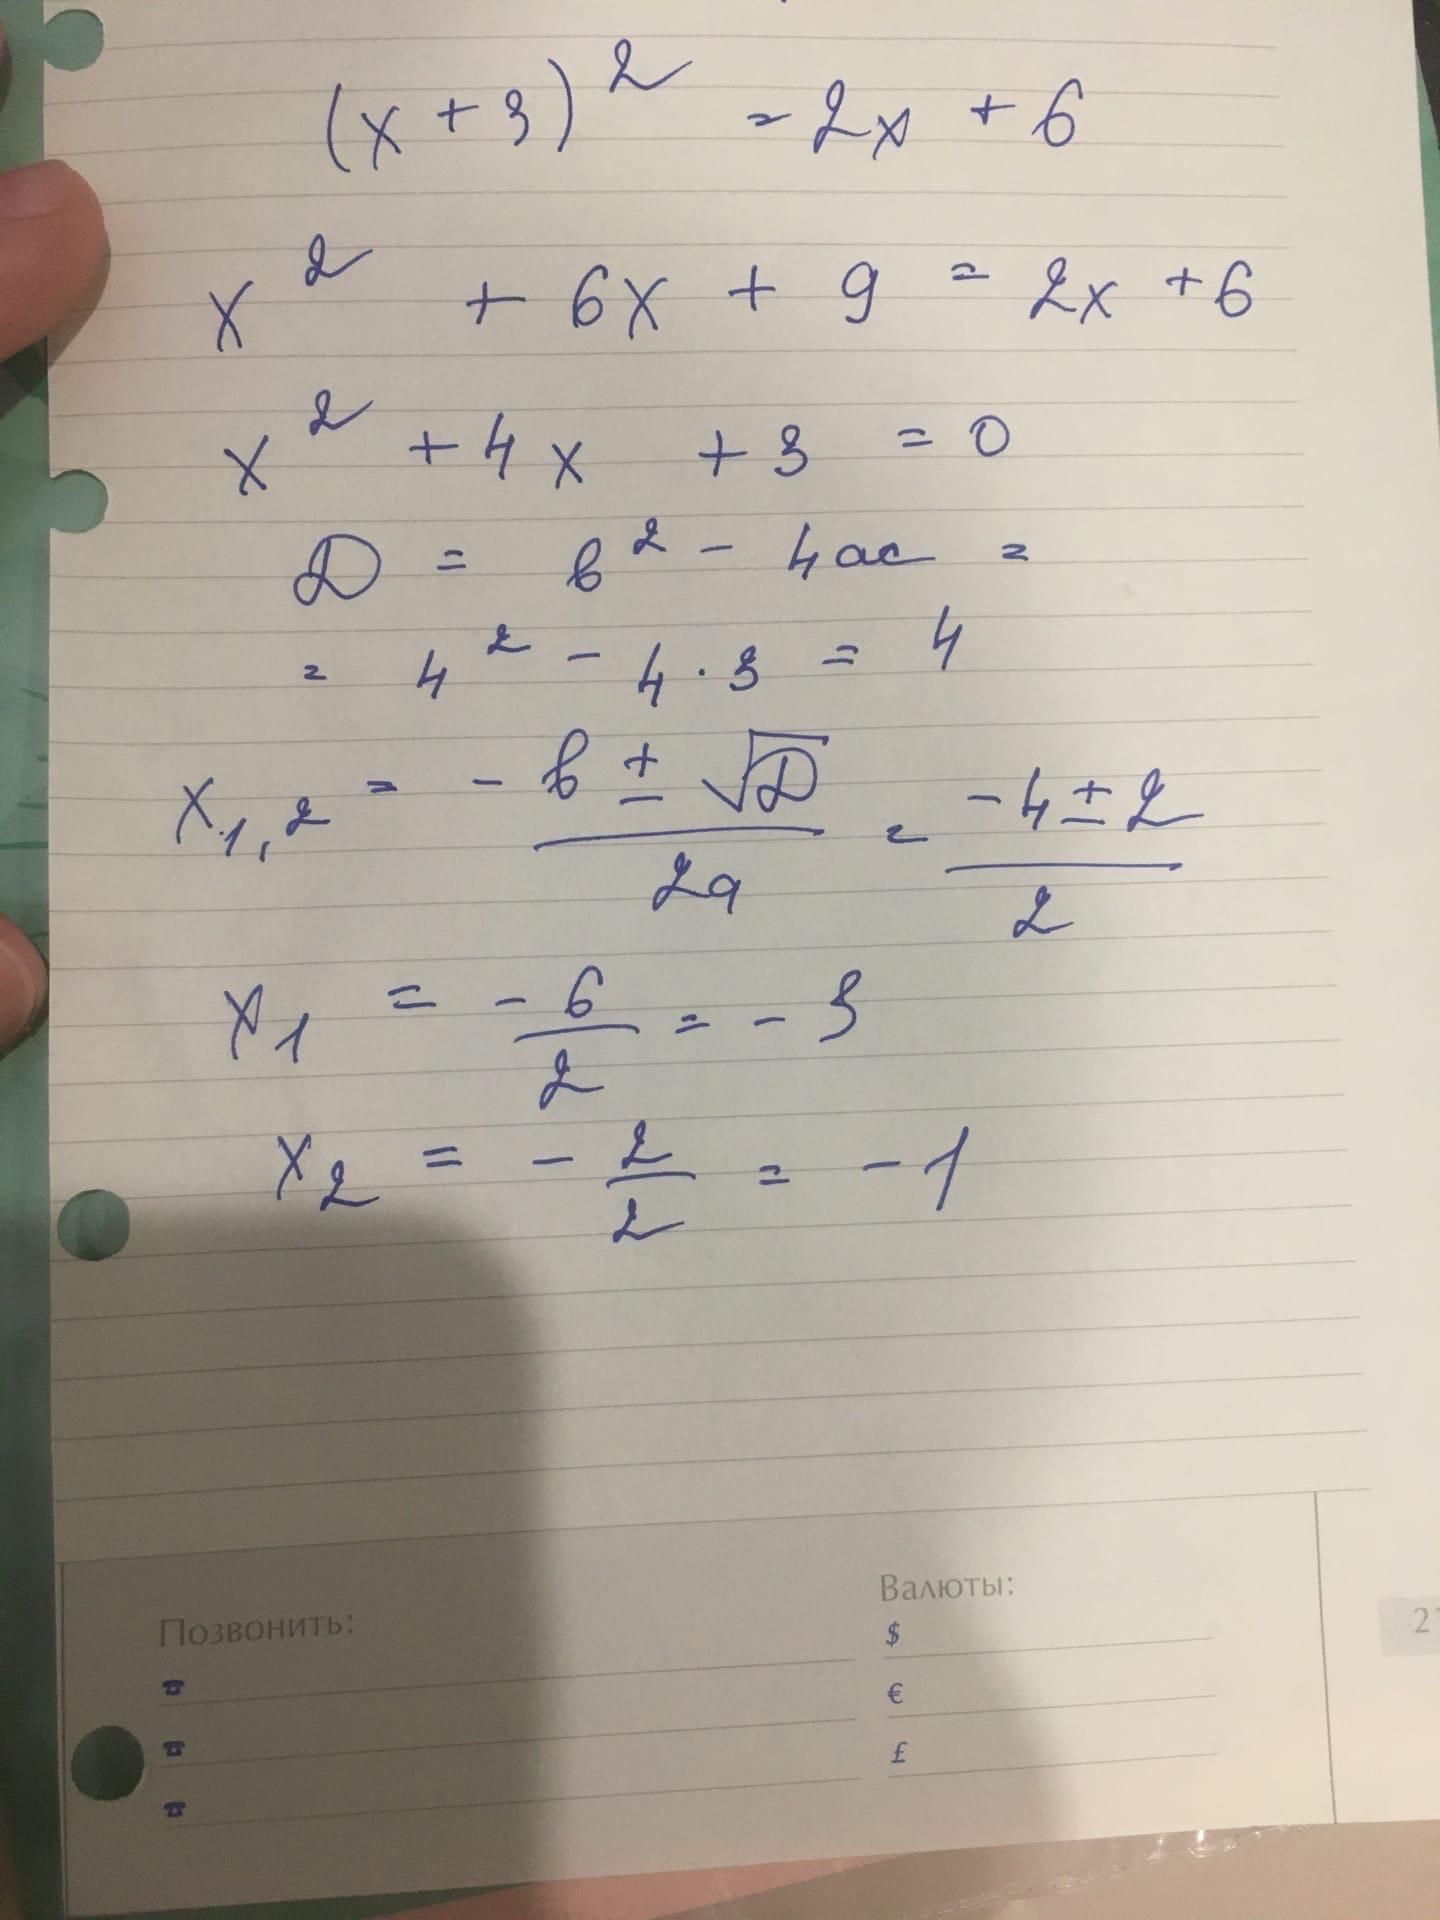 (x + 3)² = 2x + 6
x² + 6x + 9 = 2x + 6
x² + 4x + 3 = 0
D = b² - 4ac =
= 4² - 4 · 3 = 4
x₁,₂ = (-b ± √D)/(2a) = (-4 ± 2)/2
x₁ = -6/2 = -3
x₂ = -2/2 = -1
Позвонить:
Валюты:
$
€
£
☎
☎
☎